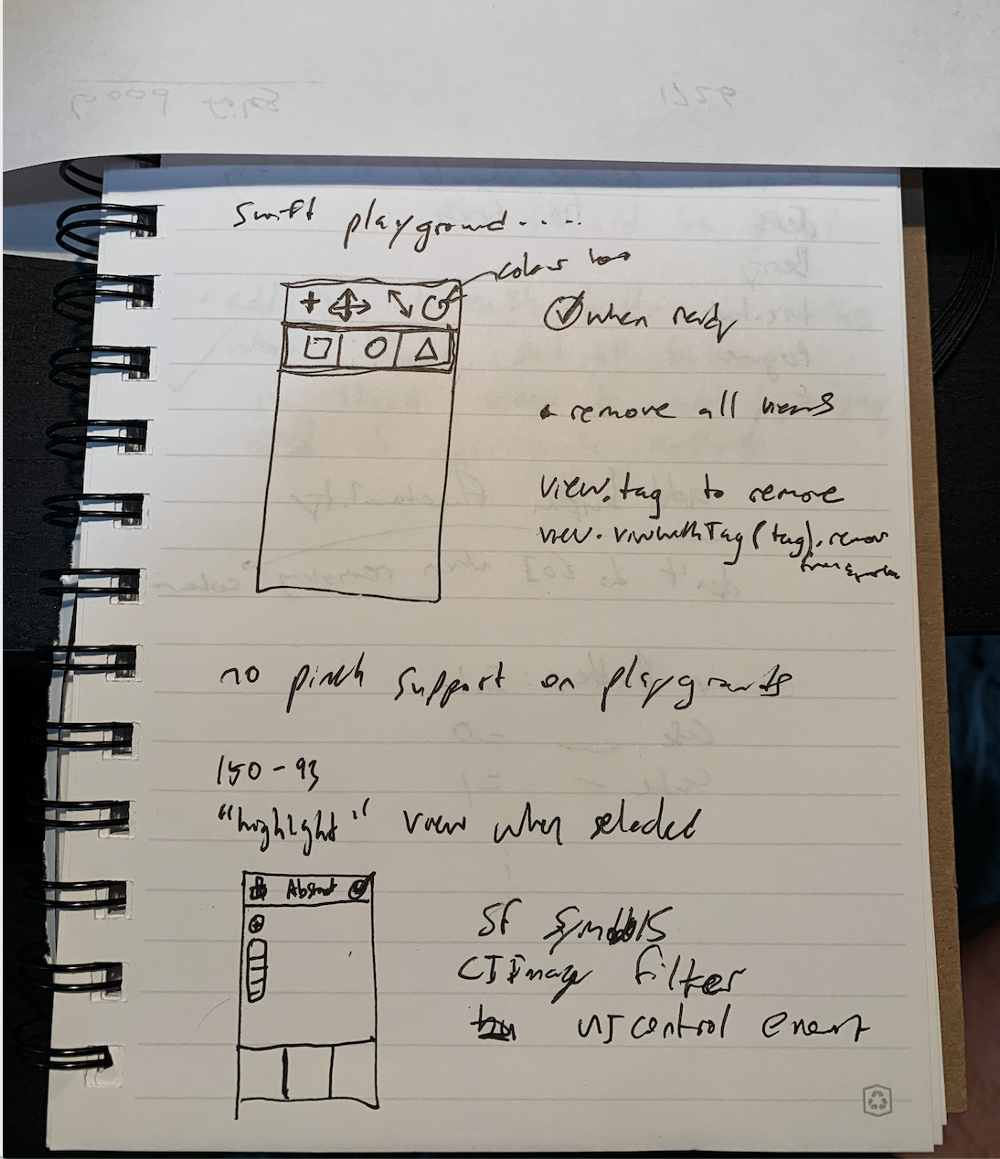 Swift playground.....
colour
when ready
remove all views
view.tag to remove
view.viewWithTag(tag).remove
from
no pinch support on playgrounds
150-93
"highlight" view when selected
Abstract
SF Symbols
CIImage filter
UIControl event